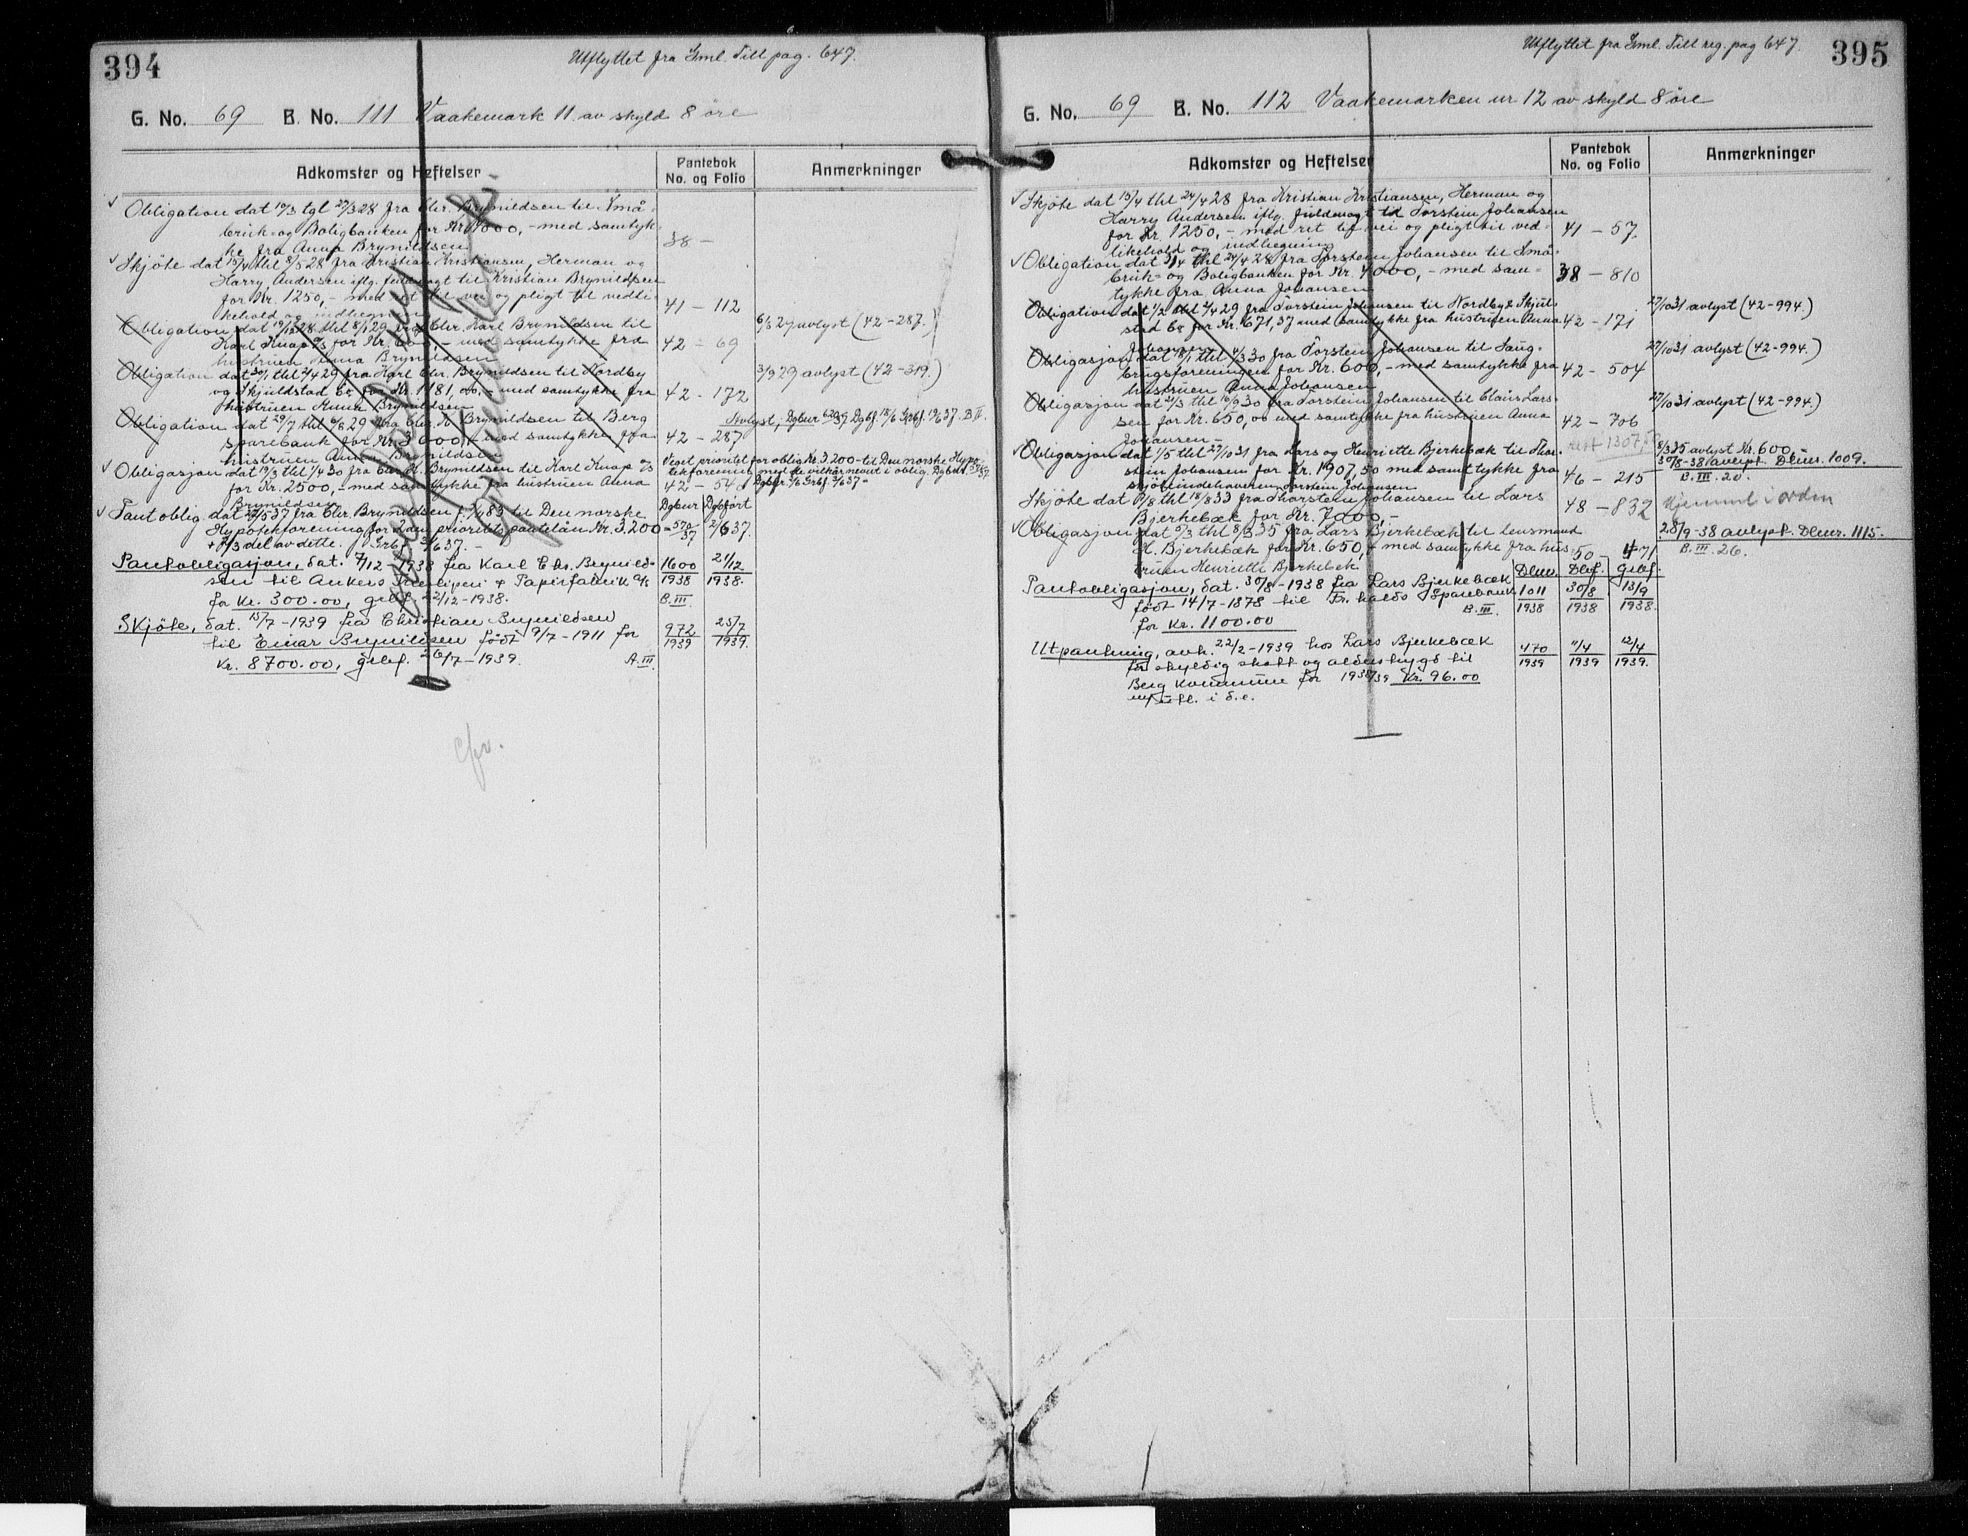 394
Utflyttet fra Gml. Till pag. 647.
G. No. 69 B. No. 111 Vaakemark 11 av skyld 8 øre
Adkomster og Heftelser
Pantebok
No. og Folio
Anmerkninger
Obligation dat 19/3 tgl 27/3 28 fra Chr. Brynildsen til Små-
bruk- og Boligbanken for Kr 4000,- med samtyk-
ke fra Anna Brynildsen
38 -
Skjøte dat 15/4 thl 8/5 28 fra Kristian Kristiansen, Herman og
Harry Andersen iflg. fuldmagt til Kristian Brynildsen
for Kr. 1250,- med ret til vei og pligt til vedli-
kehold og indhegning
41 - 112
Obligation dat 19/12 28 thl 8/1 29 fra Chr. Karl Brynildsen til
Karl Knap a/s for Kr. 600,- med samtykke fra
hustruen Anna Brynildsen
42 - 69
6/8 29 avlyst (42-287.)
Obligation dat 30/1 thl 2/4 29 fra Karl Chr. Brynildsen til Nordby
og Skjulstad for Kr. 1181,00 med samtykke fra
hustruen Anna Brynildsen
42 - 172
3/9 29 avlyst (42-319.)
Obligation dat 29/7 thl 6/8 29 fra Chr. K. Brynildsen til Berg
sparebank for Kr. 3000,- med samtykke fra
hustruen Anna Brynildsen
42 - 287
Avlyst, Dgbnr 629/37 Dgbf. 18/6 Grbf. 19/6 37. B II.
Obligasjon dat 19/3 thl 1/4 30 fra Chr. K. Brynildsen til Karl Knap a/s
for Kr. 2500,- med samtykke fra hustruen Anna
Brynildsen
42 - 54
Veget prioritet for oblig Kr. 3.200- til Den norske Hypo-
tekforening med de vilkår nevnt i oblig.
Pantoblig. dat 22/5 37 fra Chr. Brynildsen f. 83 til Den norske
Hypotekforening for 2den prioritets pantelån Kr. 3.200
+ 1/3 del av dette. Grbf. 3/6 37. -
Dgbnr Dgbført
570/37 2/6 37.
Pantobligasjon, dat. 7/12-1938 fra Karl Chr. Brynild-
sen til Ankers Træsliperi & Papirfabrik A/S
for Kr. 300.00, grbf. 22/12-1938.
1600 21/12
1938 1938.
B. III.
Skjøte, dat. 15/7-1939 fra Christian Brynildsen
til Einar Brynildsen født 9/7-1911 for
Kr. 8700.00, grbf. 26/7-1939. A. III.
972 25/7
1939 1939.
395
Utflyttet fra Gml. Till reg. pag 647.
G. No. 69 B. No. 112 Vaakemarken nr 12 av skyld 8 øre
Adkomster og Heftelser
Pantebok
No. og Folio
Anmerkninger
Skjøte dat 15/4 thl 24/4 28 fra Kristian Kristiansen, Herman og
Harry Andersen iflg. fuldmagt til Torstein Johansen
for Kr. 1250,- med ret til vei og pligt til ved-
likehold og indhegning
41 - 57.
Obligation dat 3/4 thl 24/4 28 fra Torstein Johansen til Små-
bruk- og Boligbanken for Kr. 4000,- med sam-
tykke fra Anna Johansen
38 - 810
Obligation dat 1/2 thl 2/4 29 fra Torstein Johansen til Nordby & Skjul-
stad for Kr. 671,37 med samtykke fra hustruen Anna
Johansen
42 - 171
27/10 31 avlyst (42-994.)
Obligasjon dat 18/1 thl 4/3 30 fra Torstein Johansen til Saug-
brugsforeningen for Kr. 600,- med samtykke fra
hustruen Anna Johansen
42 - 504
27/10 31 avlyst (42-994.)
Obligasjon dat 21/3 thl 16/9 30 fra Torstein Johansen til Claus Lars-
sen for Kr. 650,00 med samtykke fra hustruen Anna
Johansen -
42 - 706
27/10 31 avlyst (42-994.)
Obligasjon dat 1/5 thl 27/10 31 fra Lars og Henriette Bjerkebæk til Thor-
stein Johansen for Kr. 1907,50 med samtykke fra
skjøteindehaveren Torstein Johansen
46 - 215
rest 1307,50
8/3 35 avlyst Kr. 600
30/8-38 avlyst. Dbnr. 1009.
B. III. 20.
Skjøte dat 12/8 thl 18/8 33 fra Thorstein Johansen til Lars
Bjerkebæk for Kr. 7000,-
48 - 832
Hjemmel i orden
Obligasjon dat 5/3 thl 8/3 35 fra Lars Bjerkebæk til lensmand
H. Bjerkebæk for Kr. 650,- med samtykke fra hus-
truen Henriette Bjerkebæk
50 - 471
28/9-38 avlyst. Dbnr. 1115.
B. III. 26.
Dbnr. Dbf. Grbf.
Pantobligasjon, dat. 30/8-1938 fra Lars Bjerkebæk
født 14/7-1878 til Fr.halds Sparebank
for Kr. 1100.00
B. III.
1011 30/8 13/9
1938 1938 1938.
Utpantning, avh. 22/2-1939 hos Lars Bjerkebæk
for skyldig skatt og alderstrygd til
Berg kommune for 1938/39 Kr. 96.00
m/utl. i d.e.
470 11/4 12/4
1939 1939 1939.